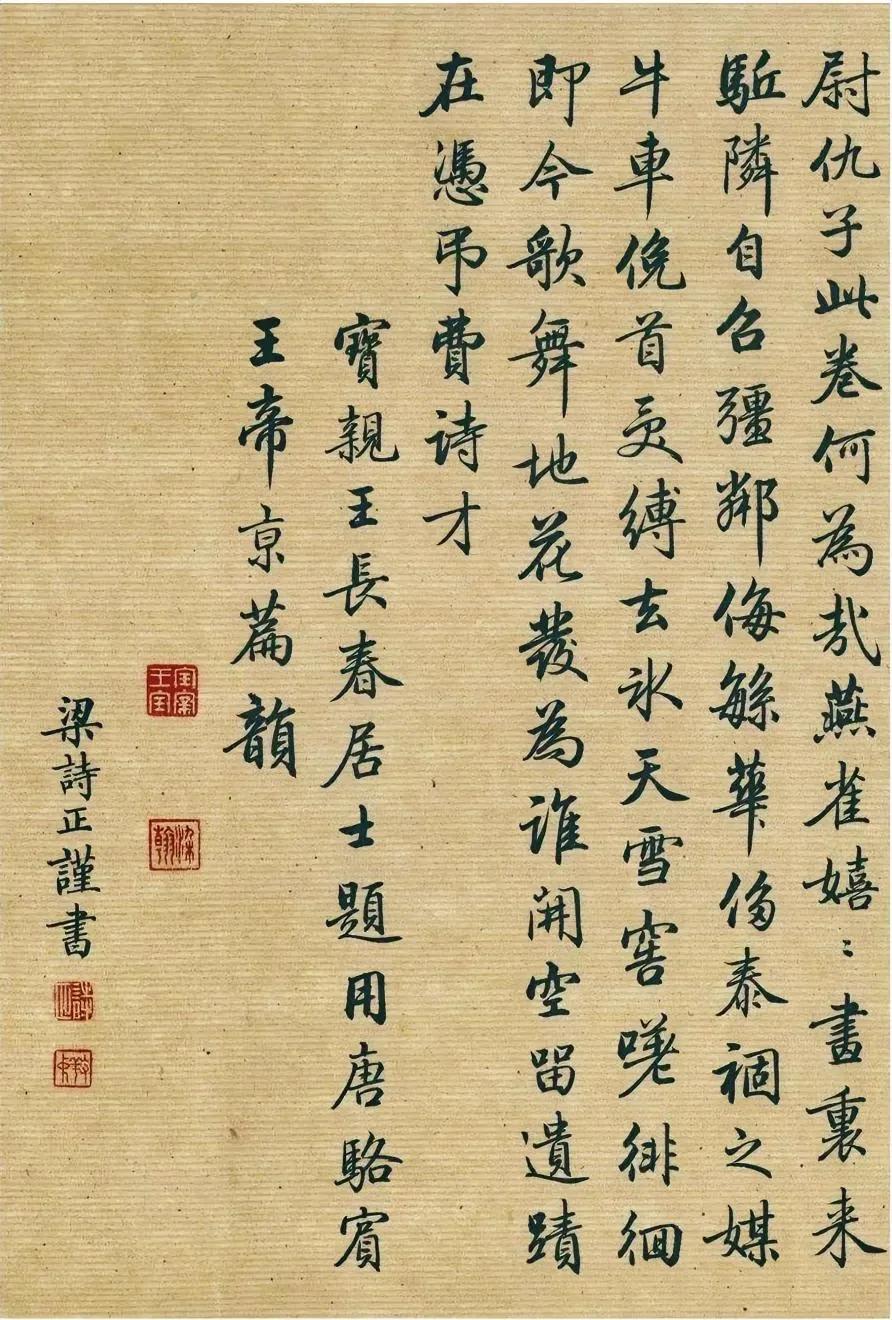 尉仇子此卷何為哉燕雀嬉〻畫裏来
駈隣自召彊鄰侮緐華侈泰禍之媒
牛車俛首受縛去氷天雪窖嗟徘徊
即今歌舞地花發為誰開空留遺蹟
在憑弔費詩才
寶親王長春居士題用唐駱賓
王帝京篇韻
寶親王寶
染翰
梁詩正謹書
詩正